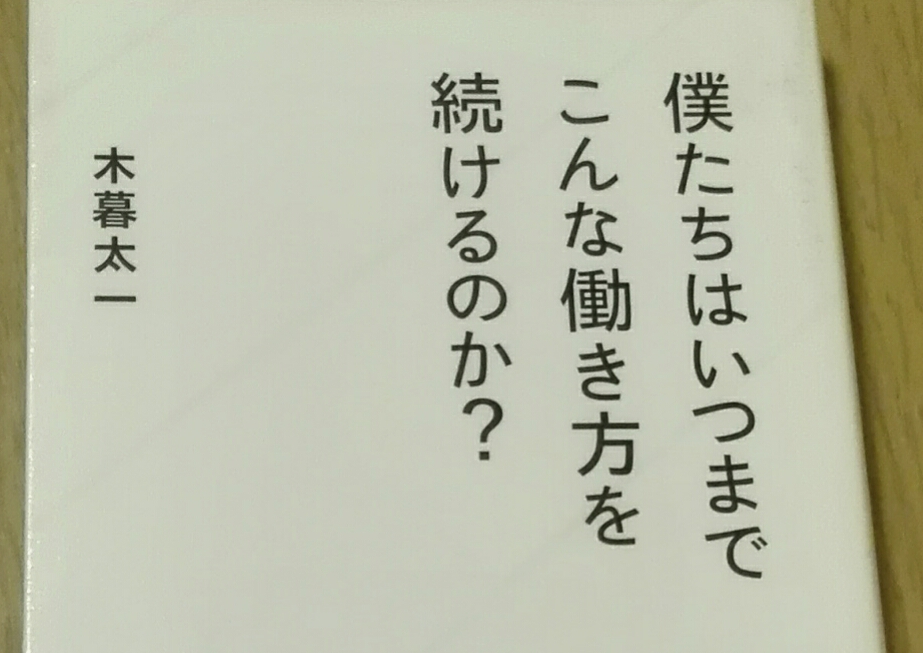 僕たちはいつまで
こんな働き方を
続けるのか？
木暮太一